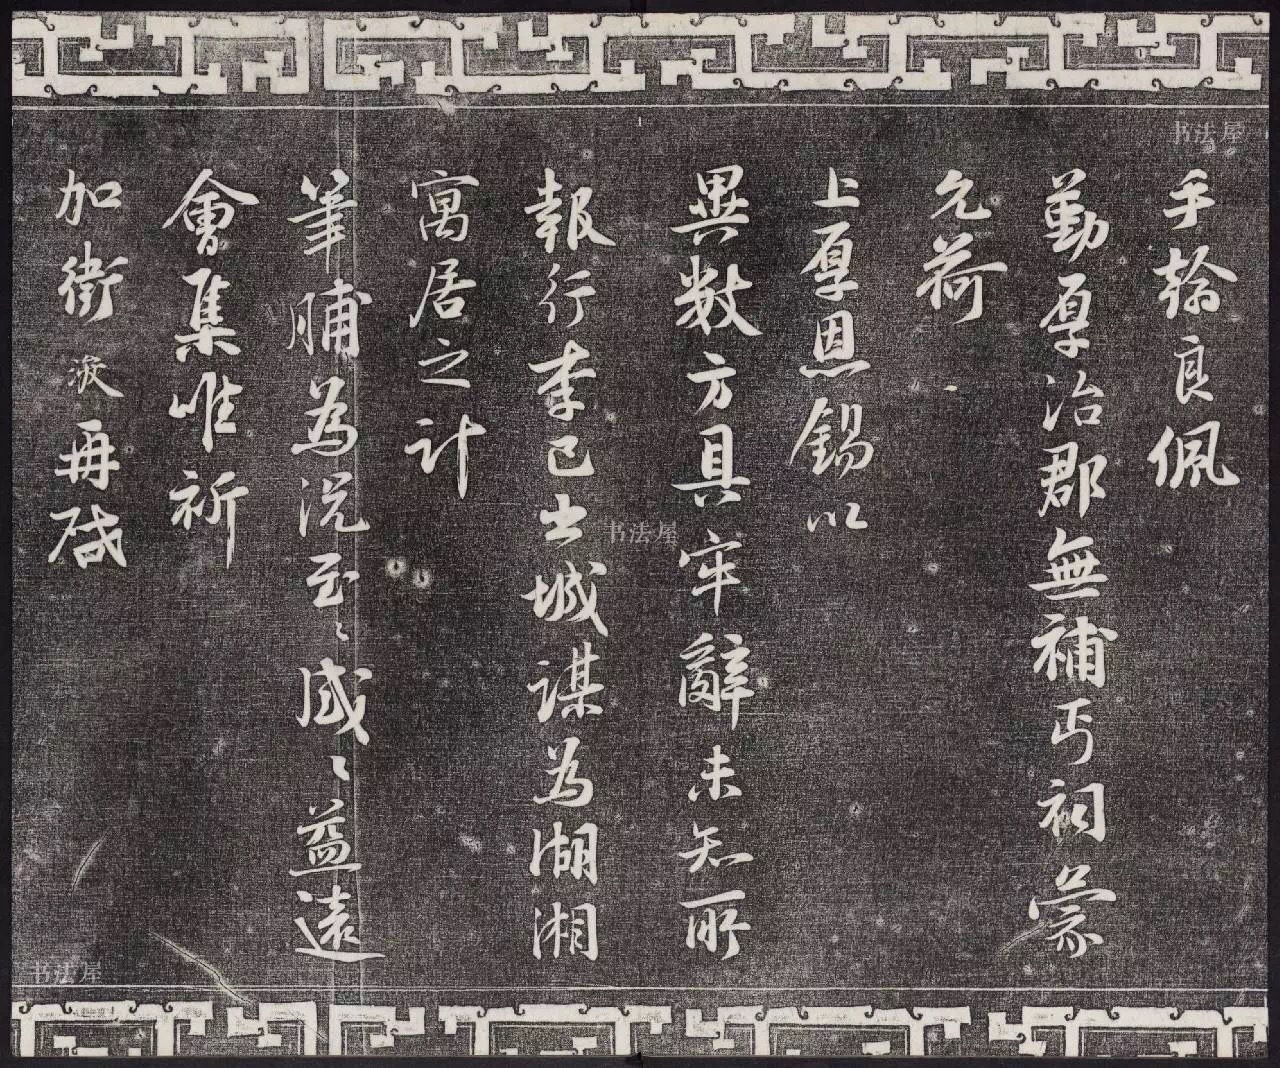 手翰良佩
勤厚治郡無補丐祠蒙
允荷
上厚恩錫以
異數方具牢辭未知所
報行李已出城謀為湖湘
寓居之計
筆脯為況至〻感〻益遠
會集唯祈
加衛 浚再啟
书法屋
书法屋
书法屋